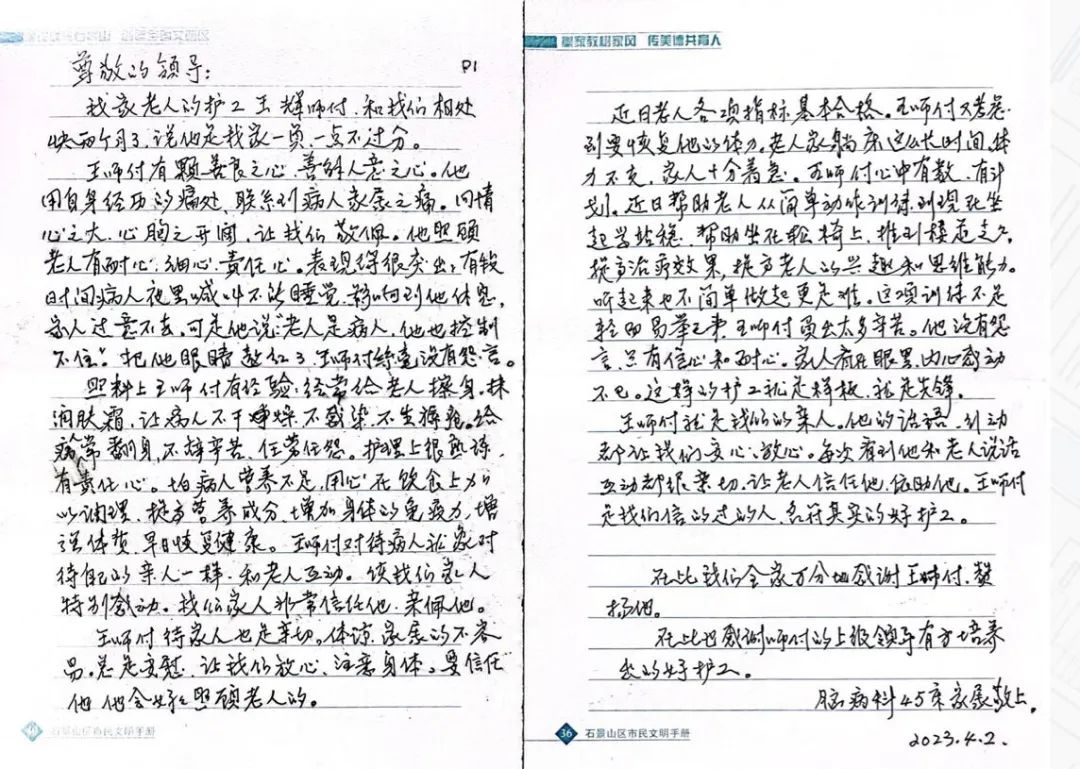 尊敬的领导:
P1
我家老人的护工王辉师付,和我们相处
快两个月了,说他是我家一员,一点不过分。
王师付有颗善良之心,善解人意之心。他
用自身经历的痛处,联系到病人家属之痛。同情
心之大,心胸之开阔,让我们敬佩。他照顾
老人有耐心,细心,责任心。表现得很突出,有段
时间病人夜里喊叫不能睡觉,影响到他休息,
家人过意不去,可是他说“老人是病人,他也控制
不住”。把他眼睛熬红了,王师付丝毫没有怨言。
照料上王师付有经验,经常给老人擦身,抹
润肤霜,让病人不干燥,不感染,不生褥疮。给
病常翻身,不辞辛苦,任劳任怨。护理上很熟练,
有责任心。怕病人营养不足,用心在饮食上加
以调理,提高营养成分,增加身体的免疫力,增
强体质,早日恢复健康。王师付对待病人就象对
待自己的亲人一样,和老人互动。使我们家人
特别感动。我们家人非常信任他,亲佩他。
王师付待家人也是亲切,体谅家属的不容
易。总是安慰,让我们放心,注意身体。要信任
他他会好好照顾老人的。
石景山区市民文明手册
赢家教树家风 传美德共育人
近日老人各项指标基本合格。王师付又考虑
到要恢复他的体力。老人家躺床这么长时间,体
力不支,家人十分着急。王师付心中有数,有计
划。近日帮助老人从简单动作训练到现在坐
起学站稳,帮助坐在轮椅上,推到楼道走走。
提高治疗效果,提高老人的兴趣和思维能力。
听起来也不简单做起更是难。这项训练不是
轻而易举之事,王师付员出太多辛苦。他没有怨
言,只有信心和耐心。家人看在眼里,内心感动
不已。这样的护工就是样板,就是先锋。
王师付就是我们的亲人。他的话语,行动
都让我们安心,放心。每次看到他和老人说话
互动都很亲切,让老人信任他,依助他。王师付
是我们信的过的人,名符其实的好护工。
在此我们全家万分地感谢王师付,赞
扬他。
在此也感谢师付的上级领导有方培养
出的好护工。
脑病科45床家属敬上。
2023.4.2.
36 石景山区市民文明手册